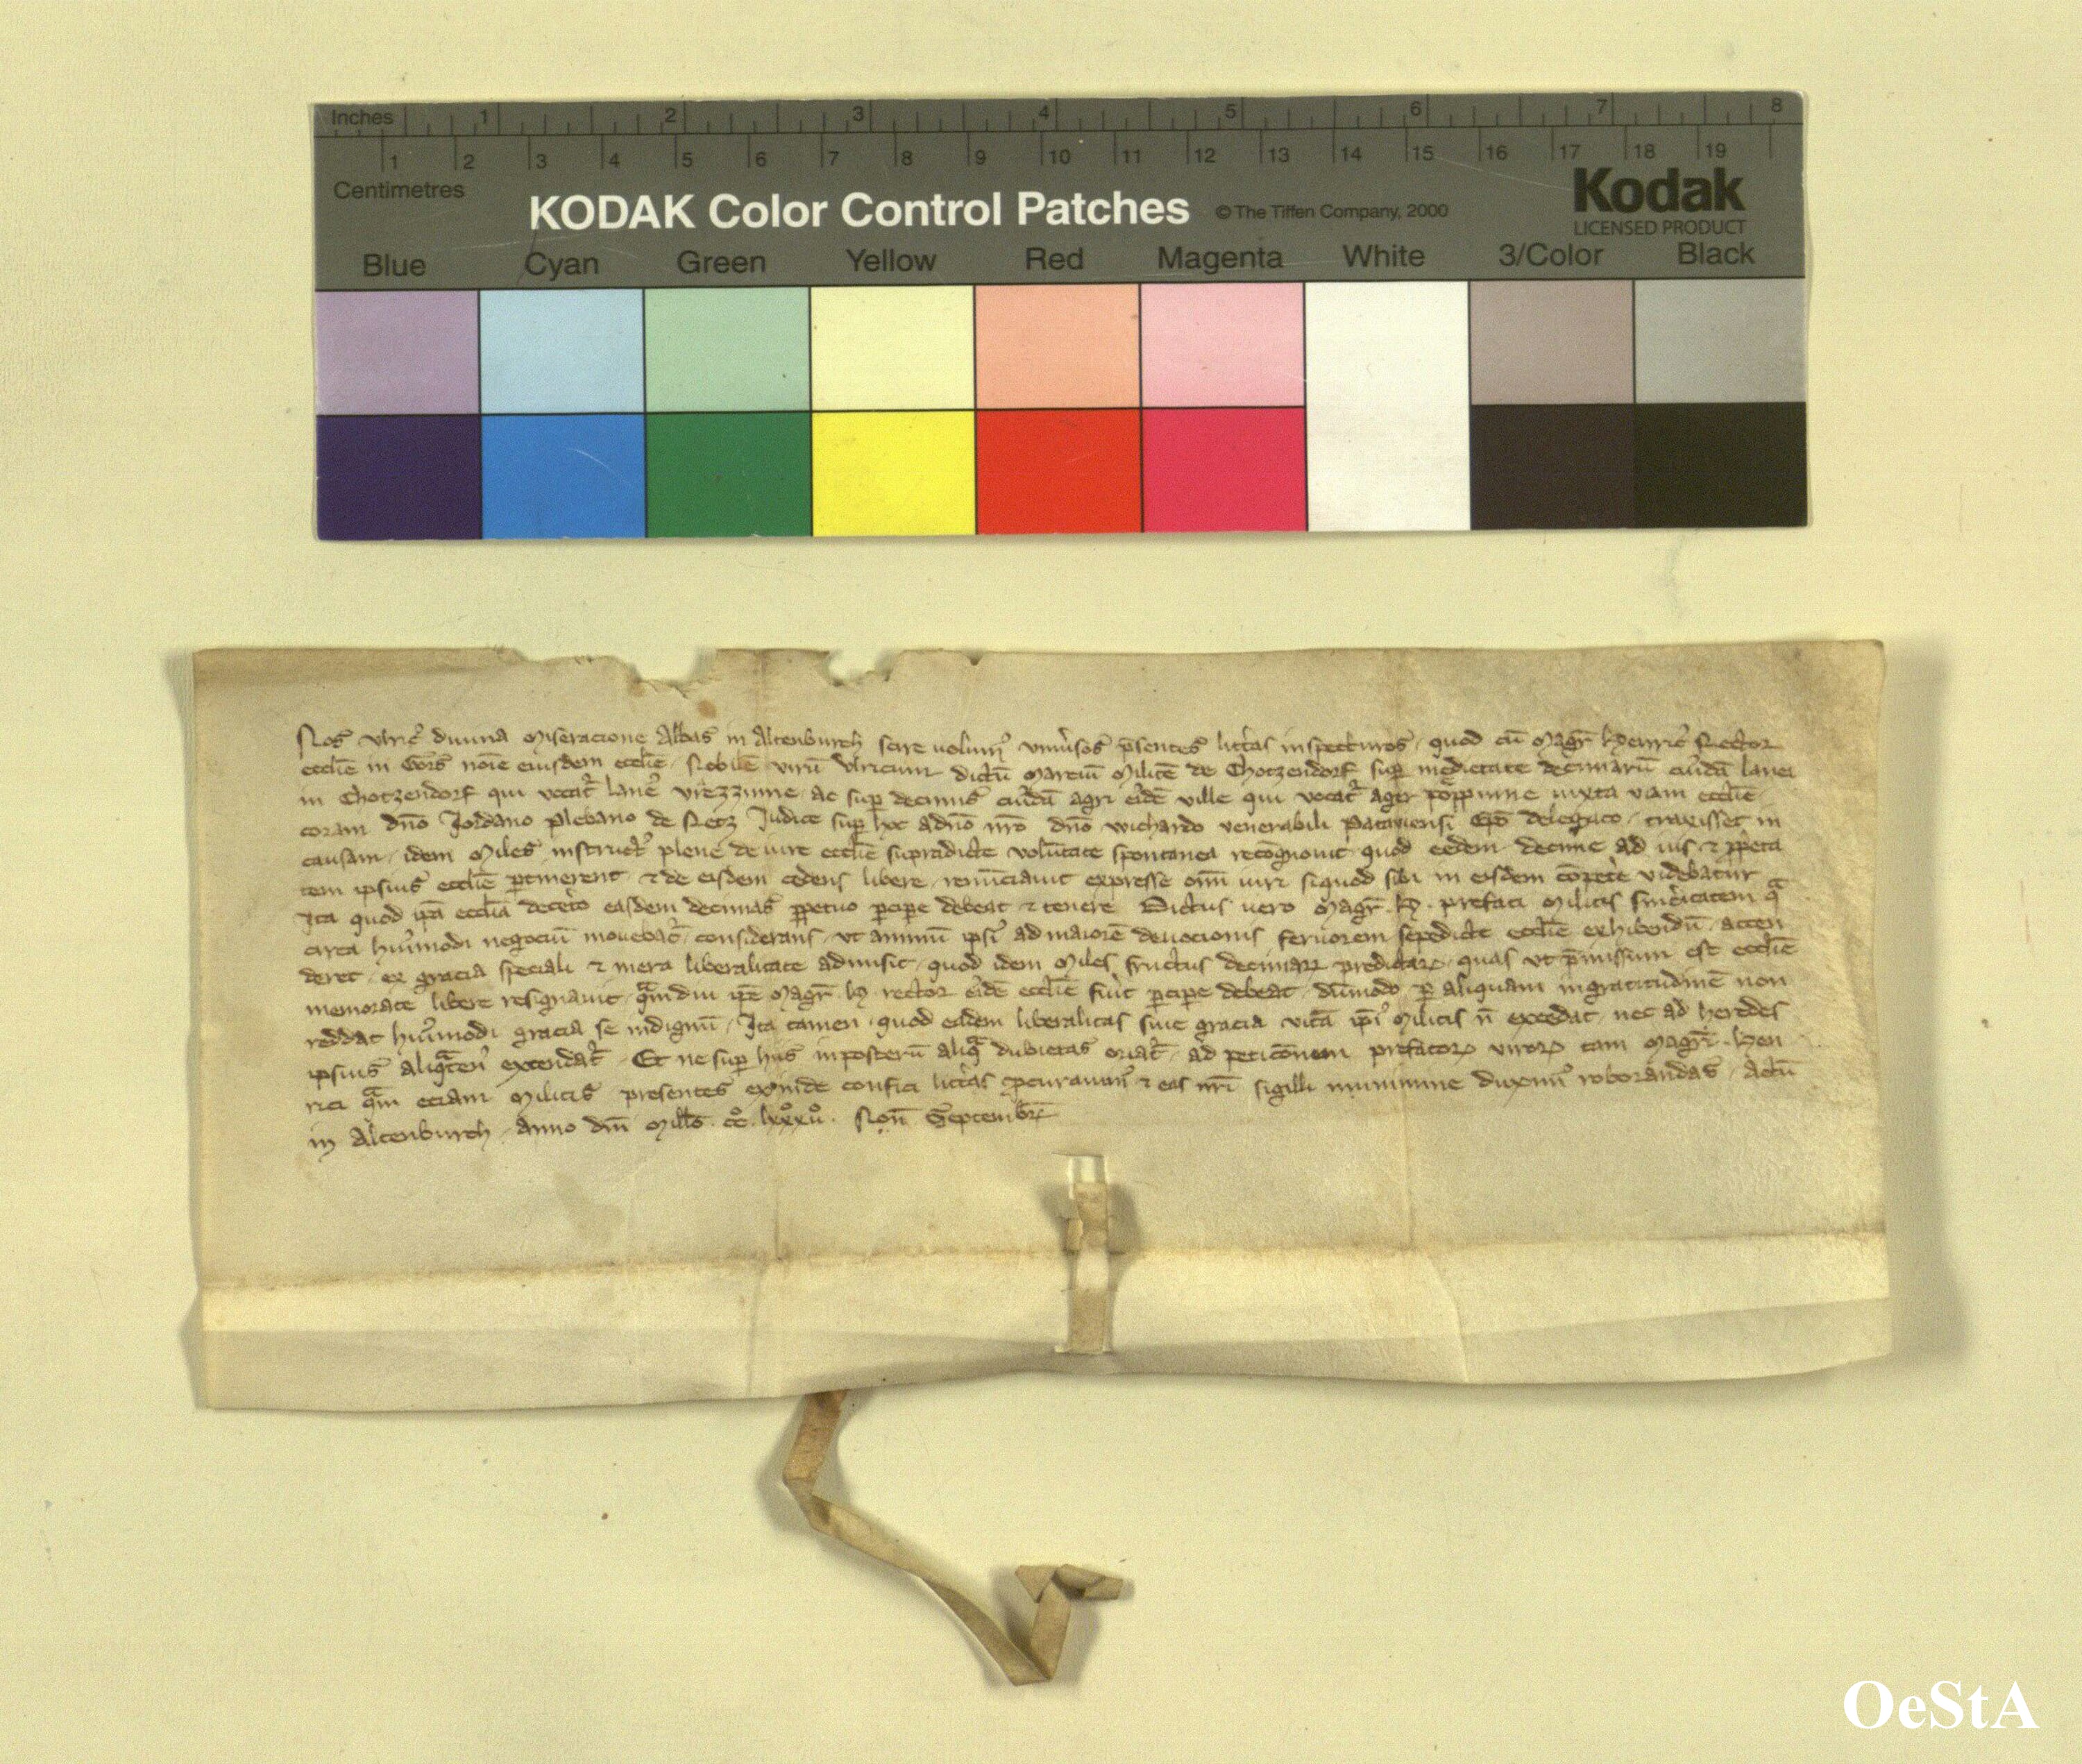 Inches 1 2 3 4 5 6 7 8
1 2 3 4 5 6 7 8 9 10 11 12 13 14 15 16 17 18 19
Centimetres
KODAK Color Control Patches © The Tiffen Company, 2000 Kodak
LICENSED PRODUCT
Blue Cyan Green Yellow Red Magenta White 3/Color Black
Nos Ulric᷒ diuina miseracione Abbas in Altenburch scire uolum᷒ vniu᷒sos p̄sentes litt̄as inspecturos, quod cū Magr̄ Heinric᷒ Rector
eccl̄ie in Gors no͞ie eiusdem eccl̄ie, Nobilē virū Ulricum dictū Marciū Militē de Chotzendorf sup̱ medietate decimarū cui᷒dā lanei
in Chotzendorf qui vocat᷒ lane᷒ vrezzinne, ac sup̱ decimis cui᷒dā agri ei᷒dē ville qui vocat᷒ ager poppinne iuxta viam eccl̄ie
coram dn̄o Jordano plebano de Retz Judice sup̱ hoc a dn̄o nr̄o dn̄o Wichardo venerabili Patauiensi Ep̄o delegato, traxisset in
causam, idem Miles instruct᷒ plene de iure eccl̄ie supradicte volūtate spontanea recōgnouit quod eedem decime ad ius ⁊ p̱p̱eta
tem ipsius eccl̄ie p̱tinerent ⁊ de eisdem cedens libere, renūciauit expresse om̄i iuri siquod sibi in eisdem cōpet᷒e videbatur
Ita quod ip̄a eccl̄ia decet᷒o easdem decimas p̱petuo p̱cip̱e debeat ⁊ tenere Dictus uero Magr̄ H. prefati Militis sinc᷒itatem q̄
circa hui᷒modi negociū mouebat᷒, considerans, vt animū ip̄i᷒ ad maiorē deuocionis feruorem sepedicte eccl̄ie exhibendū, accen
deret, ex gracia speciali ⁊ mera liberalitate admisit, quod idem Miles fructus decimaꝝ predictaꝝ, quas vt p̄missum est eccl̄ie
memorate libere resignauit, q̄mdiu ip̄e Magr̄ H. rector ei᷒dē eccl̄ie fu᷒it p̱cip̱e debeat, dūmodo p̱ aliquam ingratitudinē non
reddat hui᷒modi gracia se indignū, Ita tamen, quod eadem liberalitas siue gracia vitā ip̄i᷒ Militis n̄ excedat, nec ad heredes
ipsius aliq̄ten᷒ extendat᷒. Et ne sup̱ hiis inposterū aliq̄ dubietas oriat᷒, ad peticōnem prefatoꝝ viroꝝ tam Magr̄i Hen
rici q̄m eciam Militis presentes exinde confici litt̄as ꝓcurauim᷒ ⁊ eas nr̄i sigilli munimine duxim᷒ roborandas, Actū
in Altenburch, Anno dn̄i Mill̄o. cc̊. lxxxv̊. Non̄ Septembr̄
OeStA